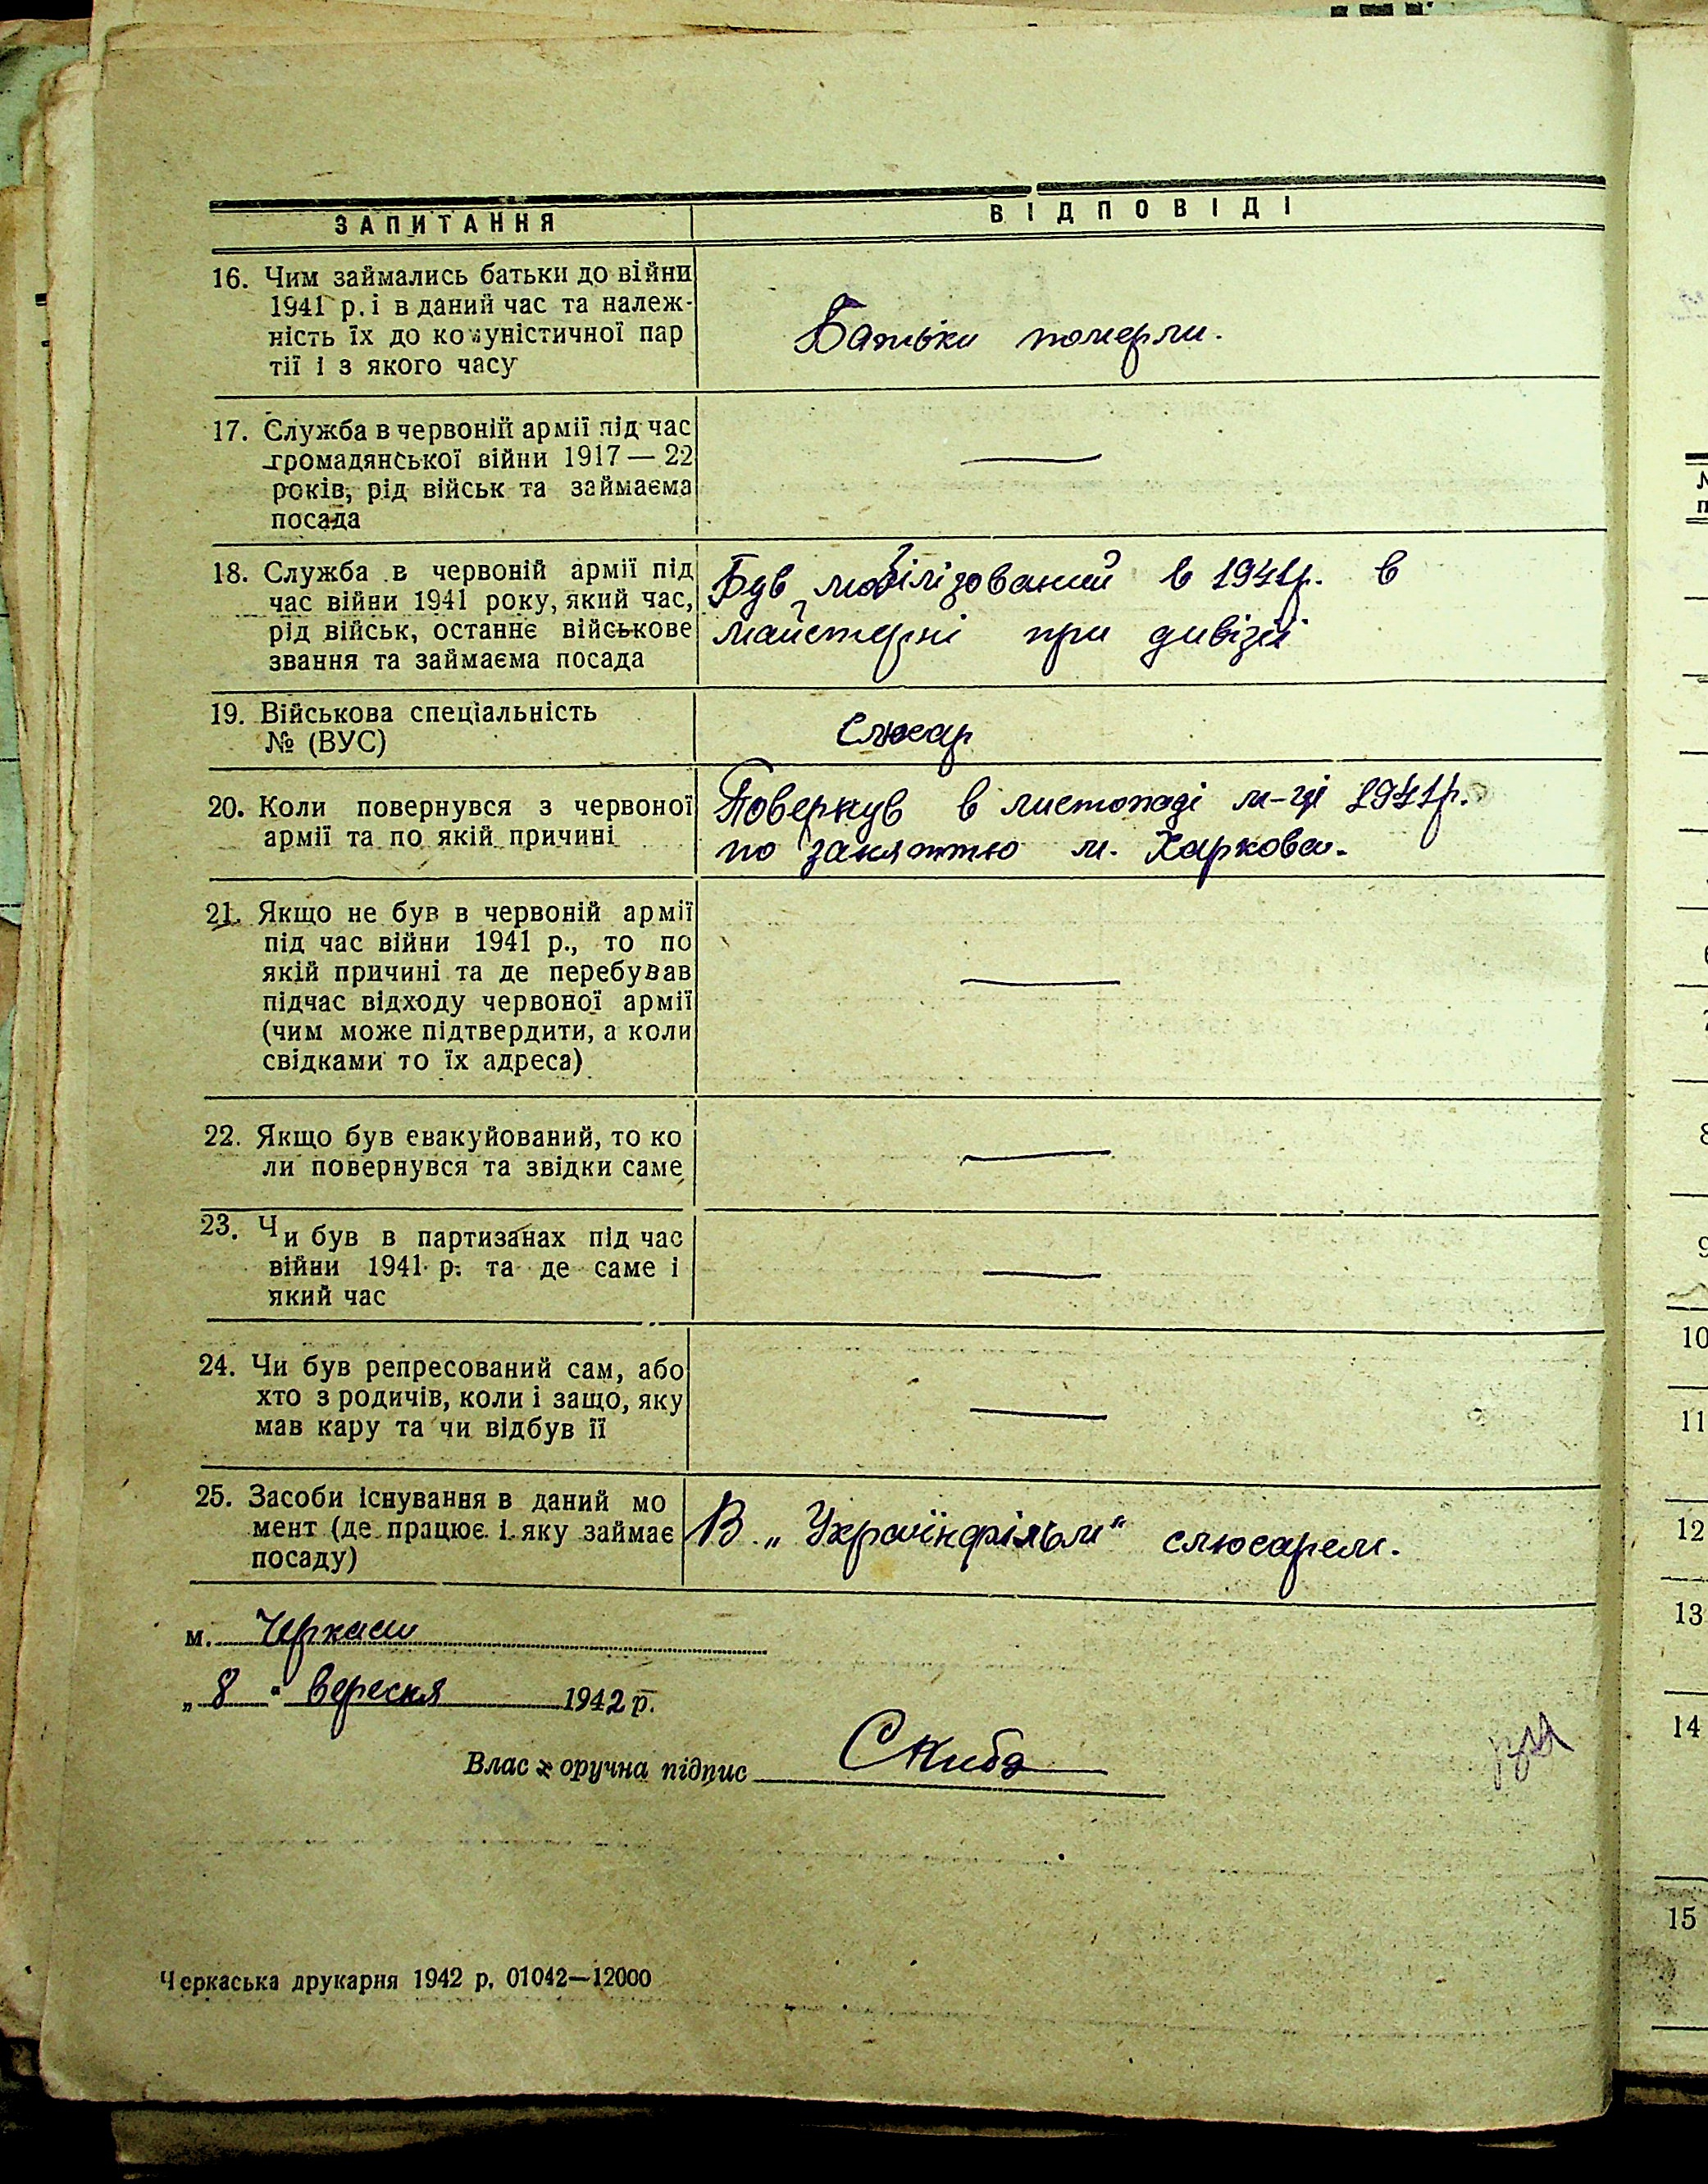 ЗАПИТАННЯ
ВІДПОВІДІ
16. Чим займались батьки до війни
1941 р. і в даний час та належ-
ність їх до комуністичної пар
тії і з якого часу
Батьки померли.
17. Служба в червоній армії під час
громадянської війни 1917 — 22
років, рід військ та займаєма
посада
—
18. Служба в червоній армії під
час війни 1941 року, який час,
рід військ, останнє військове
звання та займаєма посада
Був мобілізований в 1941р. в
майстерні при дивізії
19. Військова спеціальність
№ (ВУС)
Слюсар
20. Коли повернувся з червоної
армії та по якій причині
Повернув в листопаді м-ці 1941р.
по заняттю м. Харкова.
21. Якщо не був в червоній армії
під час війни 1941 р., то по
якій причині та де перебував
підчас відходу червоної армії
(чим може підтвердити, а коли
свідками то їх адреса)
—
22. Якщо був евакуйований, то ко
ли повернувся та звідки саме
—
23. Чи був в партизанах під час
війни 1941 р. та де саме і
який час
—
24. Чи був репресований сам, або
хто з родичів, коли і защо, яку
мав кару та чи відбув її
—
25. Засоби існування в даний мо
мент (де працює і яку займає
посаду)
В „Українфільм" слюсарем.
м. Черкаси
„8" вересня 1942 р.
Влас х оручна підпис Скиба
Черкаська друкарня 1942 р. 01042—12000
8
9
10
11
12
13
14
15